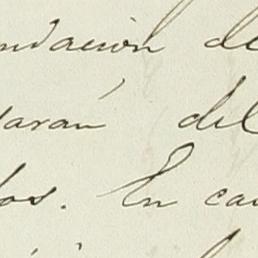 ndación de
tarán del
los. En ca